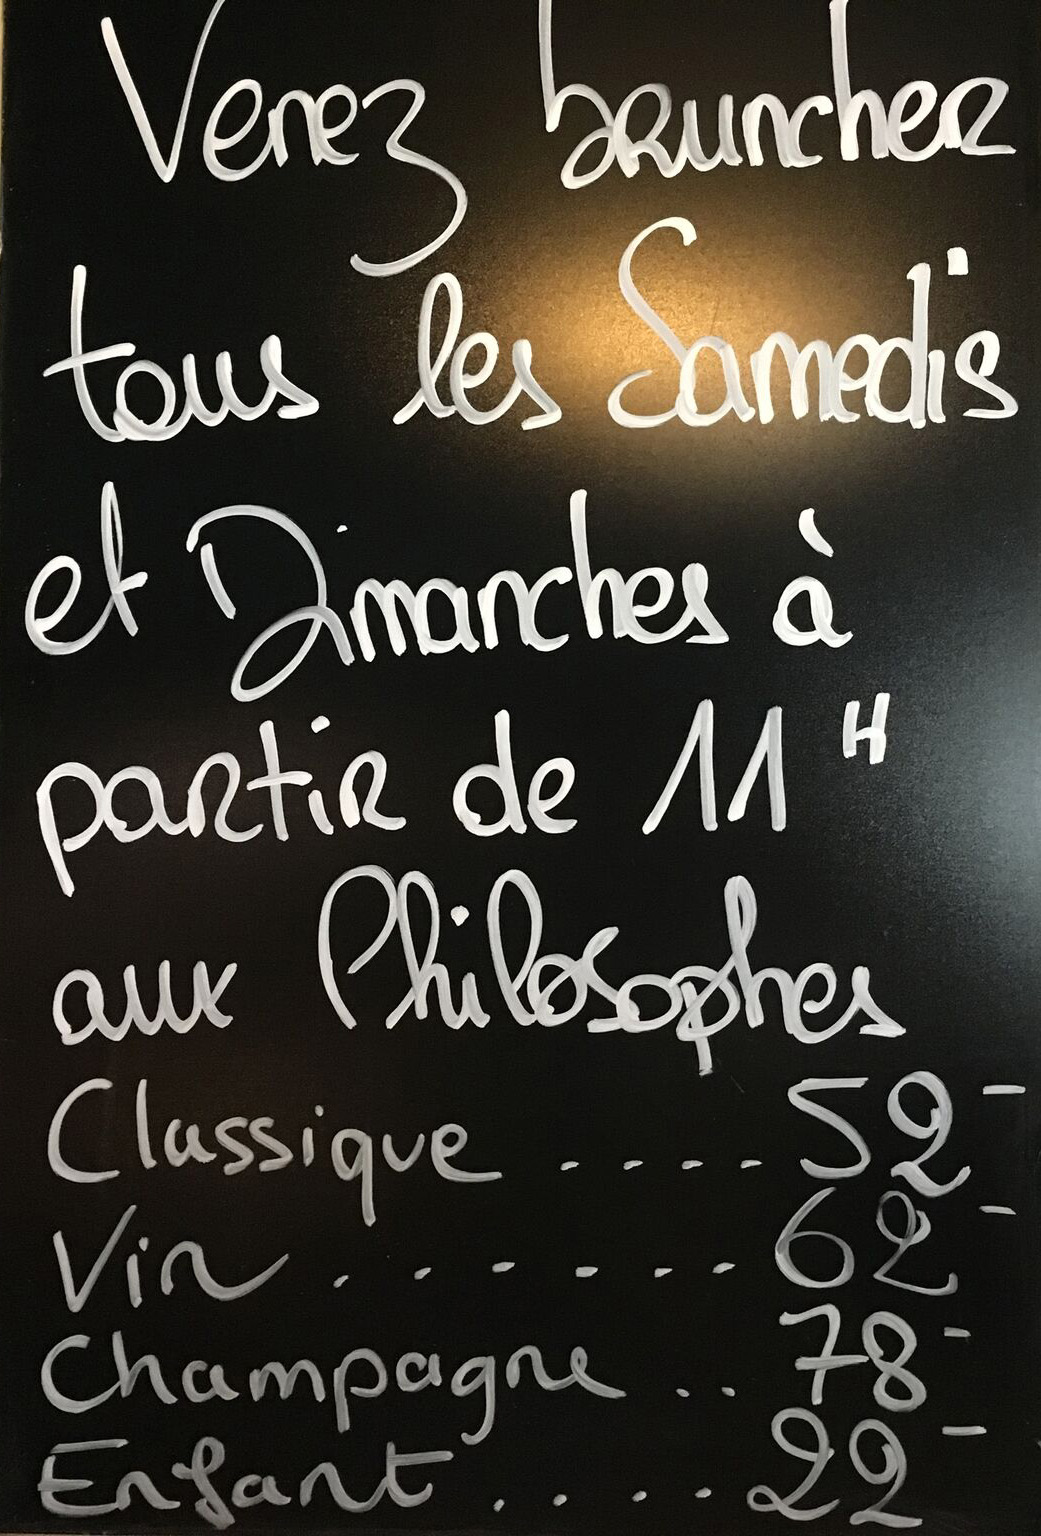 Venez bruncher
tous les Samedis
et Dimanches à
partir de 11 H
aux Philosophes
Classique .... 52-
Vin ...... 62-
Champagne .. 78-
Enfant .... 22-